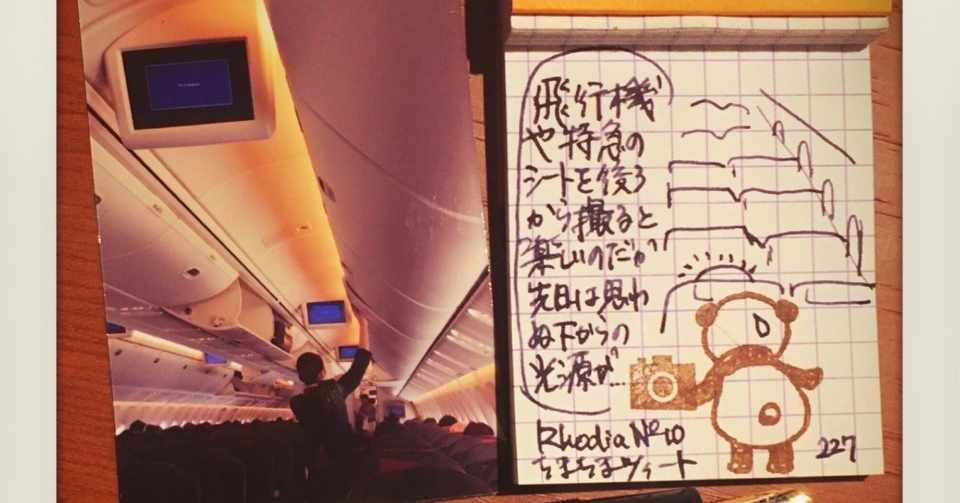 飛行機
や特急の
シートを後ろ
から撮ると
楽しいのだが
先日は思わ
ぬ下からの
光源が…
Rhodia No10
ちまちまツイート
227